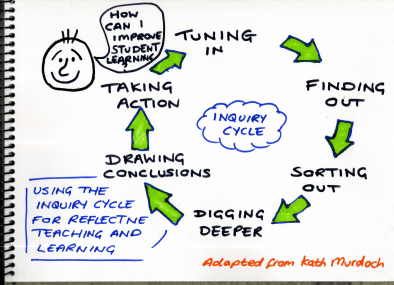 HOW
CAN I
IMPROVE
STUDENT
LEARNING
TUNING
IN
FINDING
OUT
SORTING
OUT
DIGGING
DEEPER
DRAWING
CONCLUSIONS
TAKING
ACTION
INQUIRY
CYCLE
USING THE
INQUIRY CYCLE
FOR REFLECTIVE
TEACHING AND
LEARNING
Adapted from Kath Murdoch